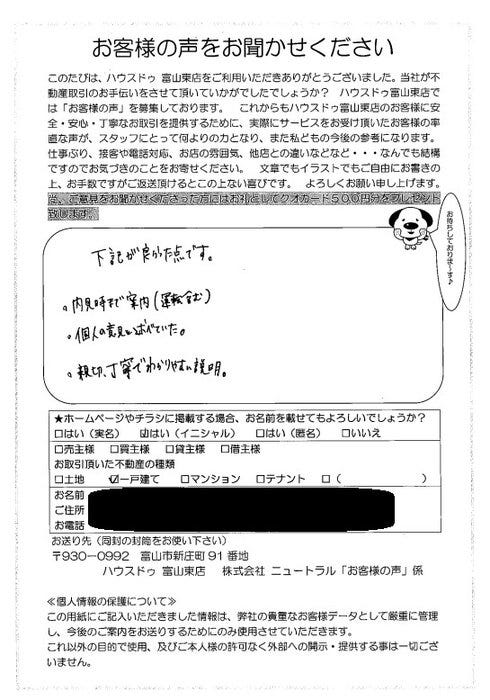 お客様の声をお聞かせください
このたびは、ハウスドゥ 富山東店をご利用いただきありがとうございました。当社が不
動産取引のお手伝いをさせて頂いていかがでしたでしょうか？ ハウスドゥ富山東店で
は「お客様の声」を募集しております。 これからもハウスドゥ富山東店のお客様に安
全・安心・丁寧なお取引を提供するために、実際にサービスをお受け頂いたお客様の率
直な声が、スタッフにとって何よりの力となり、また私どもの今後の参考になります。
仕事ぶり、接客や電話対応、お店の雰囲気、他店との違いなどなど・・・なんでも結構
ですのでお気づきのことをお寄せください。 文章でもイラストでもご自由にお書きの
上、お手数ですがご返送頂けるとこの上ない喜びです。 よろしくお願い申し上げます。
尚、ご意見をお聞かせくださった方にはお礼としてクオカード５００円分をプレゼント
致します。
お待ちしております～♪
下記が良かった点です。
。内見時まで案内(運転含む)
。個人の意見も述べていた。
。親切、丁寧でわかりやすい説明。
★ホームページやチラシに掲載する場合、お名前を載せてもよろしいでしょうか？
□はい（実名） ☑はい（イニシャル） □はい（匿名） □いいえ
□売主様 □買主様 □貸主様 □借主様
お取引頂いた不動産の種類
□土地 ☑一戸建て □マンション □テナント □（ ）
お名前
ご住所
お電話
お送り先（同封の封筒をお使い下さい）
〒930-0992 富山市新庄町91番地
ハウスドゥ 富山東店 株式会社 ニュートラル「お客様の声」係
≪個人情報の保護について≫
この用紙にご記入いただきました情報は、弊社の貴重なお客様データとして厳重に管理
し、今後のご案内をお送りするためにのみ使用させていただきます。
これ以外の目的で使用、及びご本人様の許可なく外部への開示・提供する事は一切ござ
いません。